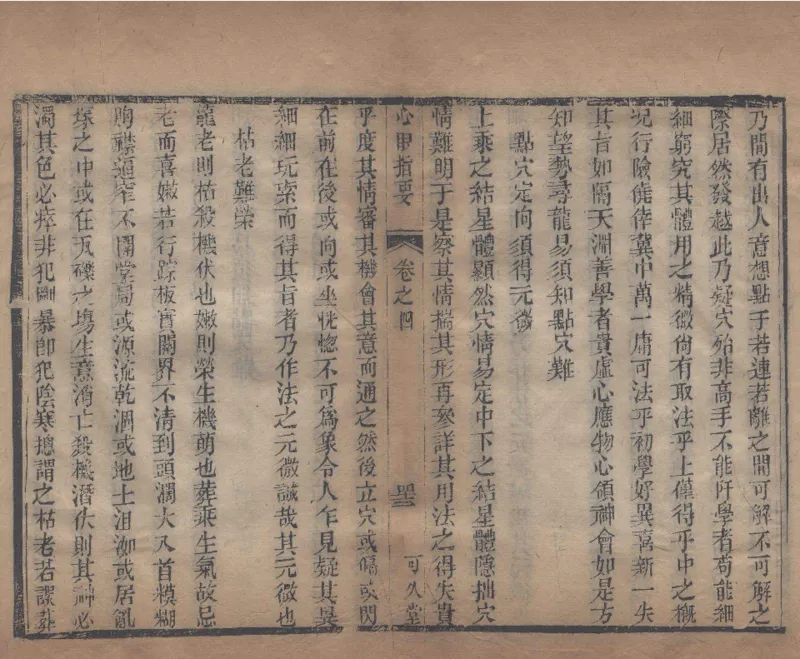 乃間有出人意想點于若連若離之間可解不可解之
際居然發越此乃疑穴殆非高手不能阡學者苟能細
細窮究其體用之精微尚有取法乎上僅得乎中之概
況行險僥倖冀中萬一庸可法乎初學好異喜新一失
其旨如隔天淵善學者貴虛心應物心領神會如是方
知望勢尋龍易須知點穴難
點穴定向須得元微
上乘之結星體顯然穴情易定中下之結星體隱拙穴
情難明于是察其情揣其形再參詳其用法之得失貴
心甲指要
卷之四
可久堂
乎度其情審其機會其意而通之然後立穴或偏或閃
在前在後或向或坐恍惚不可為象令人乍見疑其異
細細玩索而得其旨者乃作法之元微誠哉其元微也
枯老難榮
龍老則枯殺機伏也嫩則榮生機萌也葬乘生氣故忌
老而喜嫩若行踪板實開界不清到頭濶大入首模糊
胸襟逼窄不開堂局或源流乾涸或地土沮洳或居亂
塚之中或在瓦礫之塲生意消亡殺機潛伏則其神必
濁其色必瘁非犯剛暴即犯陰寒摠謂之枯老若誤葬